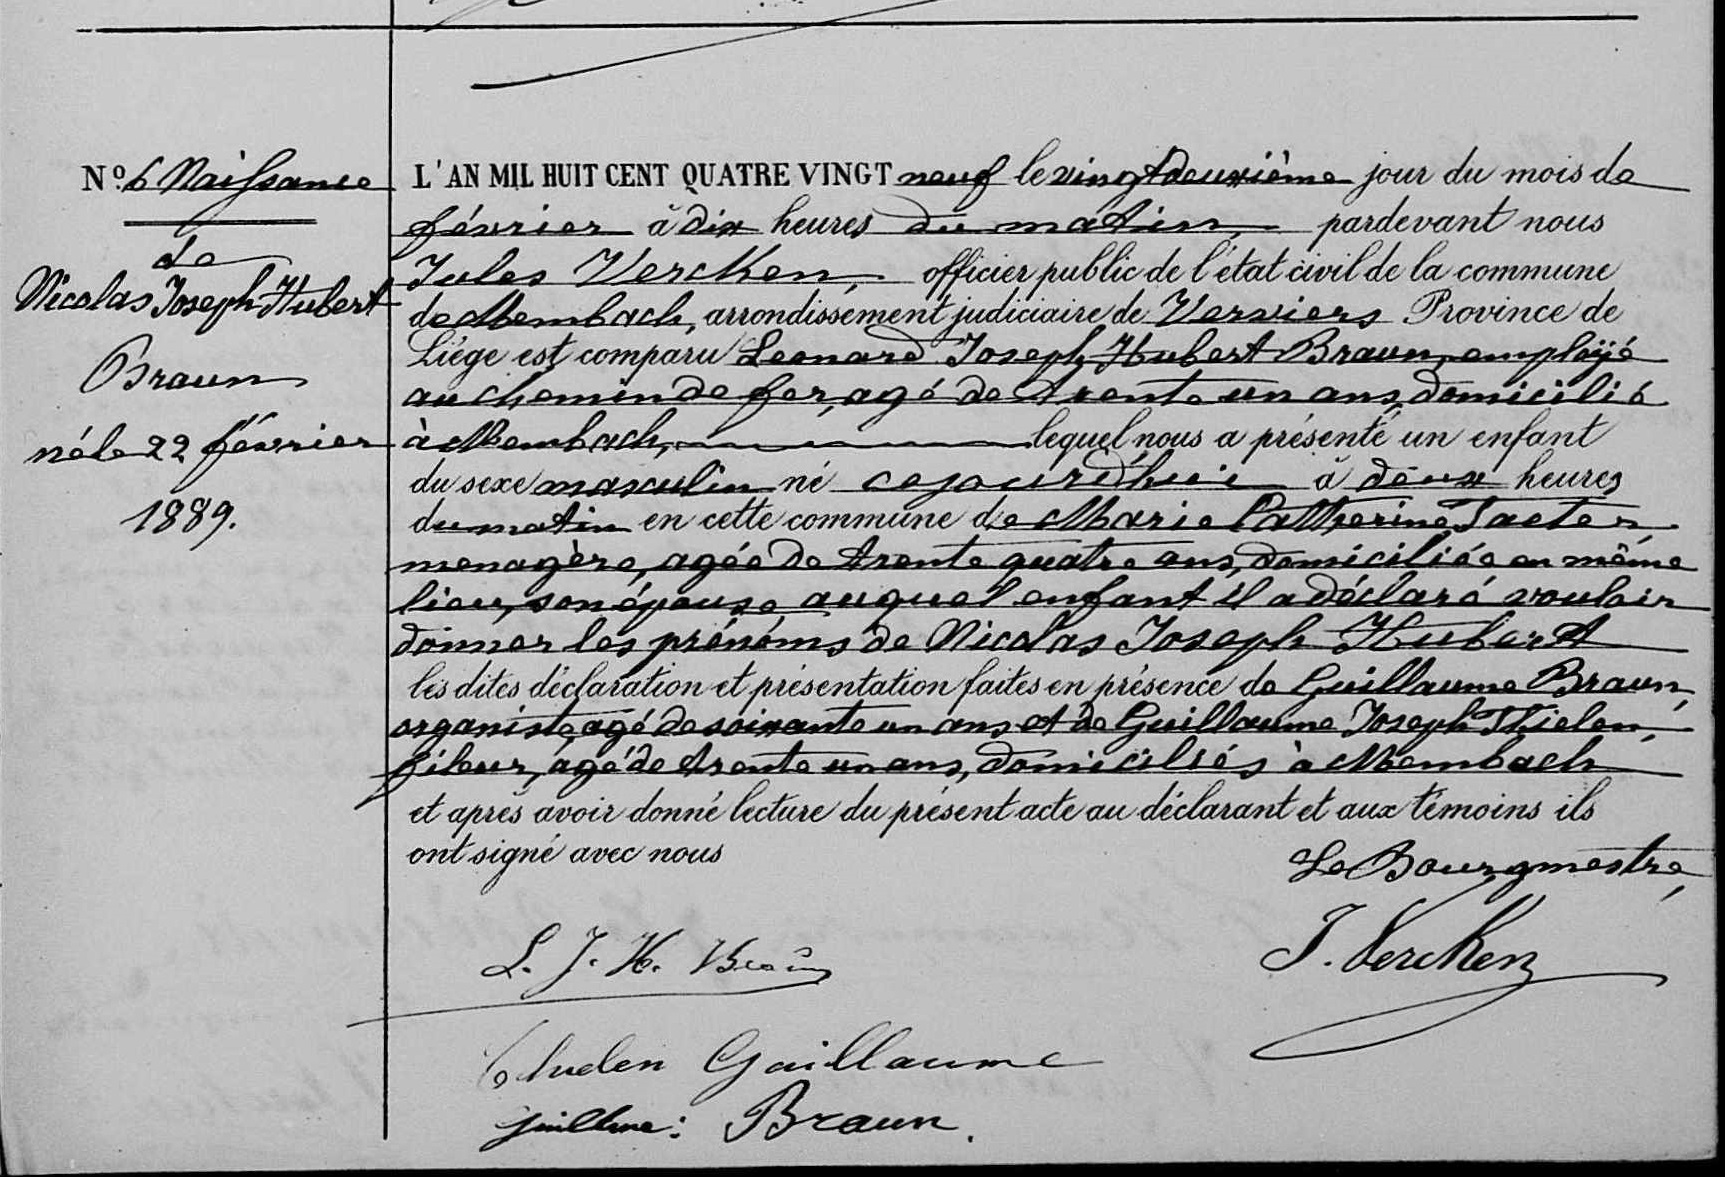 Nº 6 Naissance
de
Nicolas Joseph Hubert
Braun
né le 22 février
1889.
L'AN MIL HUIT CENT QUATRE VINGT neuf le vingt deuxième jour du mois de
février à dix heures du matin, pardevant nous
Jules Vercken, officier public de l'état civil de la commune
de Membach, arrondissement judiciaire de Verviers Province de
Liége est comparu Leonard Joseph Hubert Braun, employé
au chemin de fer, agé de trente un ans, domicilié
à Membach, lequel nous a présenté un enfant
du sexe masculin né cejourd'hui à deux heures
du matin en cette commune de Marie Catherine
menagère, agée de trente quatre ans, domiciliée en même
lieu, son épouse auquel enfant il a déclaré vouloir
donner les prénoms de Nicolas Joseph Hubert
les dites déclaration et présentation faites en présence de Guillaume Braun,
organiste, agé de soixante un ans et de Guillaume Joseph Thielen,
fileur, agé de trente un ans, domiciliés à Membach
et après avoir donné lecture du présent acte au déclarant et aux témoins ils
ont signé avec nous
Le Bourgmestre,
L. J. H. Braun
J. Vercken
Guillaume
Braun.